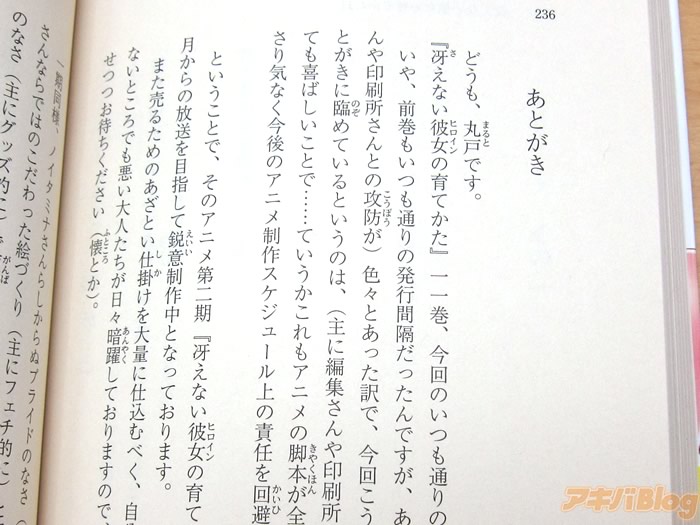 236
あとがき
どうも、丸戸です。
『冴えない彼女の育てかた』一一巻、今回のいつも通りの
いや、前巻もいつも通りの発行間隔だったんですが、あ
んや印刷所さんとの攻防が）色々とあった訳で、今回こう
とがきに臨めているというのは、（主に編集さんや印刷所
ても喜ばしいことで……ていうかこれもアニメの脚本が全
さり気なく今後のアニメ制作スケジュール上の責任を回避
ということで、そのアニメ第二期『冴えない彼女の育て
月からの放送を目指して鋭意制作中となっております。
また売るためのあざとい仕掛けを大量に仕込むべく、自
ないところでも悪い大人たちが日々暗躍しておりますので、
せつつお待ちください（懐とか）。
一期同様、ノイタミナさんらしからぬプライドのなさ（
さんならではのこだわった絵づくり（主にフェチ的に）と
のなさ（主にグッズ的に）で
アキバBlog